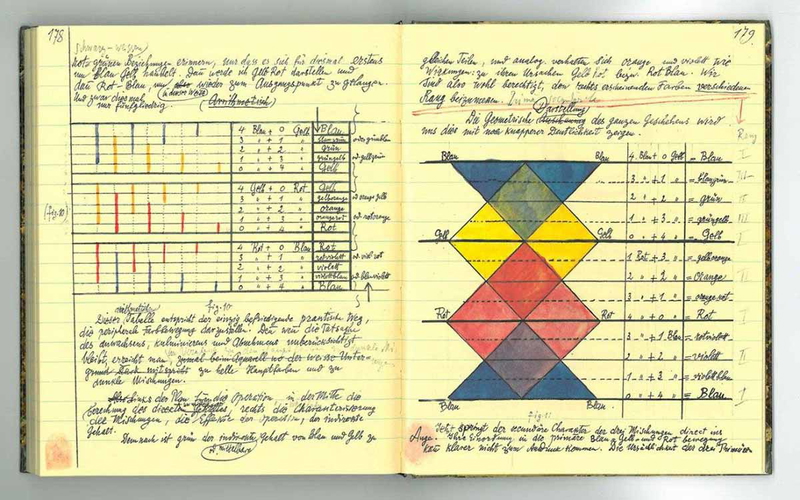 178
schwarz-weissen
rot-grünen Beziehungen erinnern, nur dass es sich für diesmal erstens
um Blau Gelb handelt. Dann werde ich Gelb Rot darstellen und
dann Rot-Blau, um wieder zum Ausgangspunkt zu gelangen.
(in dieser Weise)
und zwar diesmal
(Arithmetisch)
4 Blau + 0 Gelb Blau
3 " + 1 " blaugrün oder grünblau
2 " + 2 " grün
1 " + 3 " grüngelb od gelbgrün
0 " + 4 " Gelb
4 Gelb + 0 Rot Gelb
3 " + 1 " gelborange od orangegelb
(fig. 10) 2 " + 2 " orange
1 " + 3 " orangerot od rotorange
0 " + 4 " Rot
4 Rot + 0 Blau Rot
3 " + 1 " rotviolett od. viol-rot
2 " + 2 " violett
1 " + 3 " violettblau od blauviolett
0 " + 4 " Blau
arithmetischer fig. 10
Dieser Tabelle entspricht der einzig befriedigende practische Weg,
die peripherale Farbbewegung darzustellen. Denn nur die Tatsache
des Anwachsens, Kulminierens und Abnehmens
bleibt, erreicht man,
zu helle Hauptfarben und zu
dunkle Mischungen.
links der Plan für die Operation, in der Mitte die
Berechnung des directen Gehaltes, rechts die Characterisierung
die Mischungen, die Effecte der Operation, der indirecte
Gehalt.
Demnach ist grün der indirecte Gehalt von Blau und Gelb zu
179.
gleichen Teilen, und analog verhalten sich orange und violett wie
Wirkungen zu ihren Ursachen Gelb Rot bezw. Rot Blau. Wir
sind also wohl berechtigt, den halb erscheinenden Farben verschiedenen
Rang beizumessen.
Darstellung
Die Geometrische des ganzen Geschehens wird
uns dies mit noch knapperer Deutlichkeit zeigen.
Rang
Blau Blau 4 Blau + 0 Gelb = Blau I
3 " + 1 " = blaugrün III
2 " + 2 " = grün II
1 " + 3 " = grüngelb III
Gelb Gelb 0 " + 4 " = Gelb I
1 Rot + 3 " = gelborange
2 " + 2 " = Orange II
3 " + 1 " = orangerot
Rot Rot 4 " + 0 " = Rot I
3 " + 1 Blau = rotviolett
2 " + 2 " = violett II
1 " + 3 " = violettblau
Blau Blau 0 " + 4 " = Blau I
fig. 11
Jetzt springt der secundäre Character der drei Mischungen direct ins
Auge. Ihre Einordnung in die primäre Blau-Gelb- und Rot bewegung
kann klarer nicht zum Ausdruck kommen. Die Ursächlichkeit der drei Primären